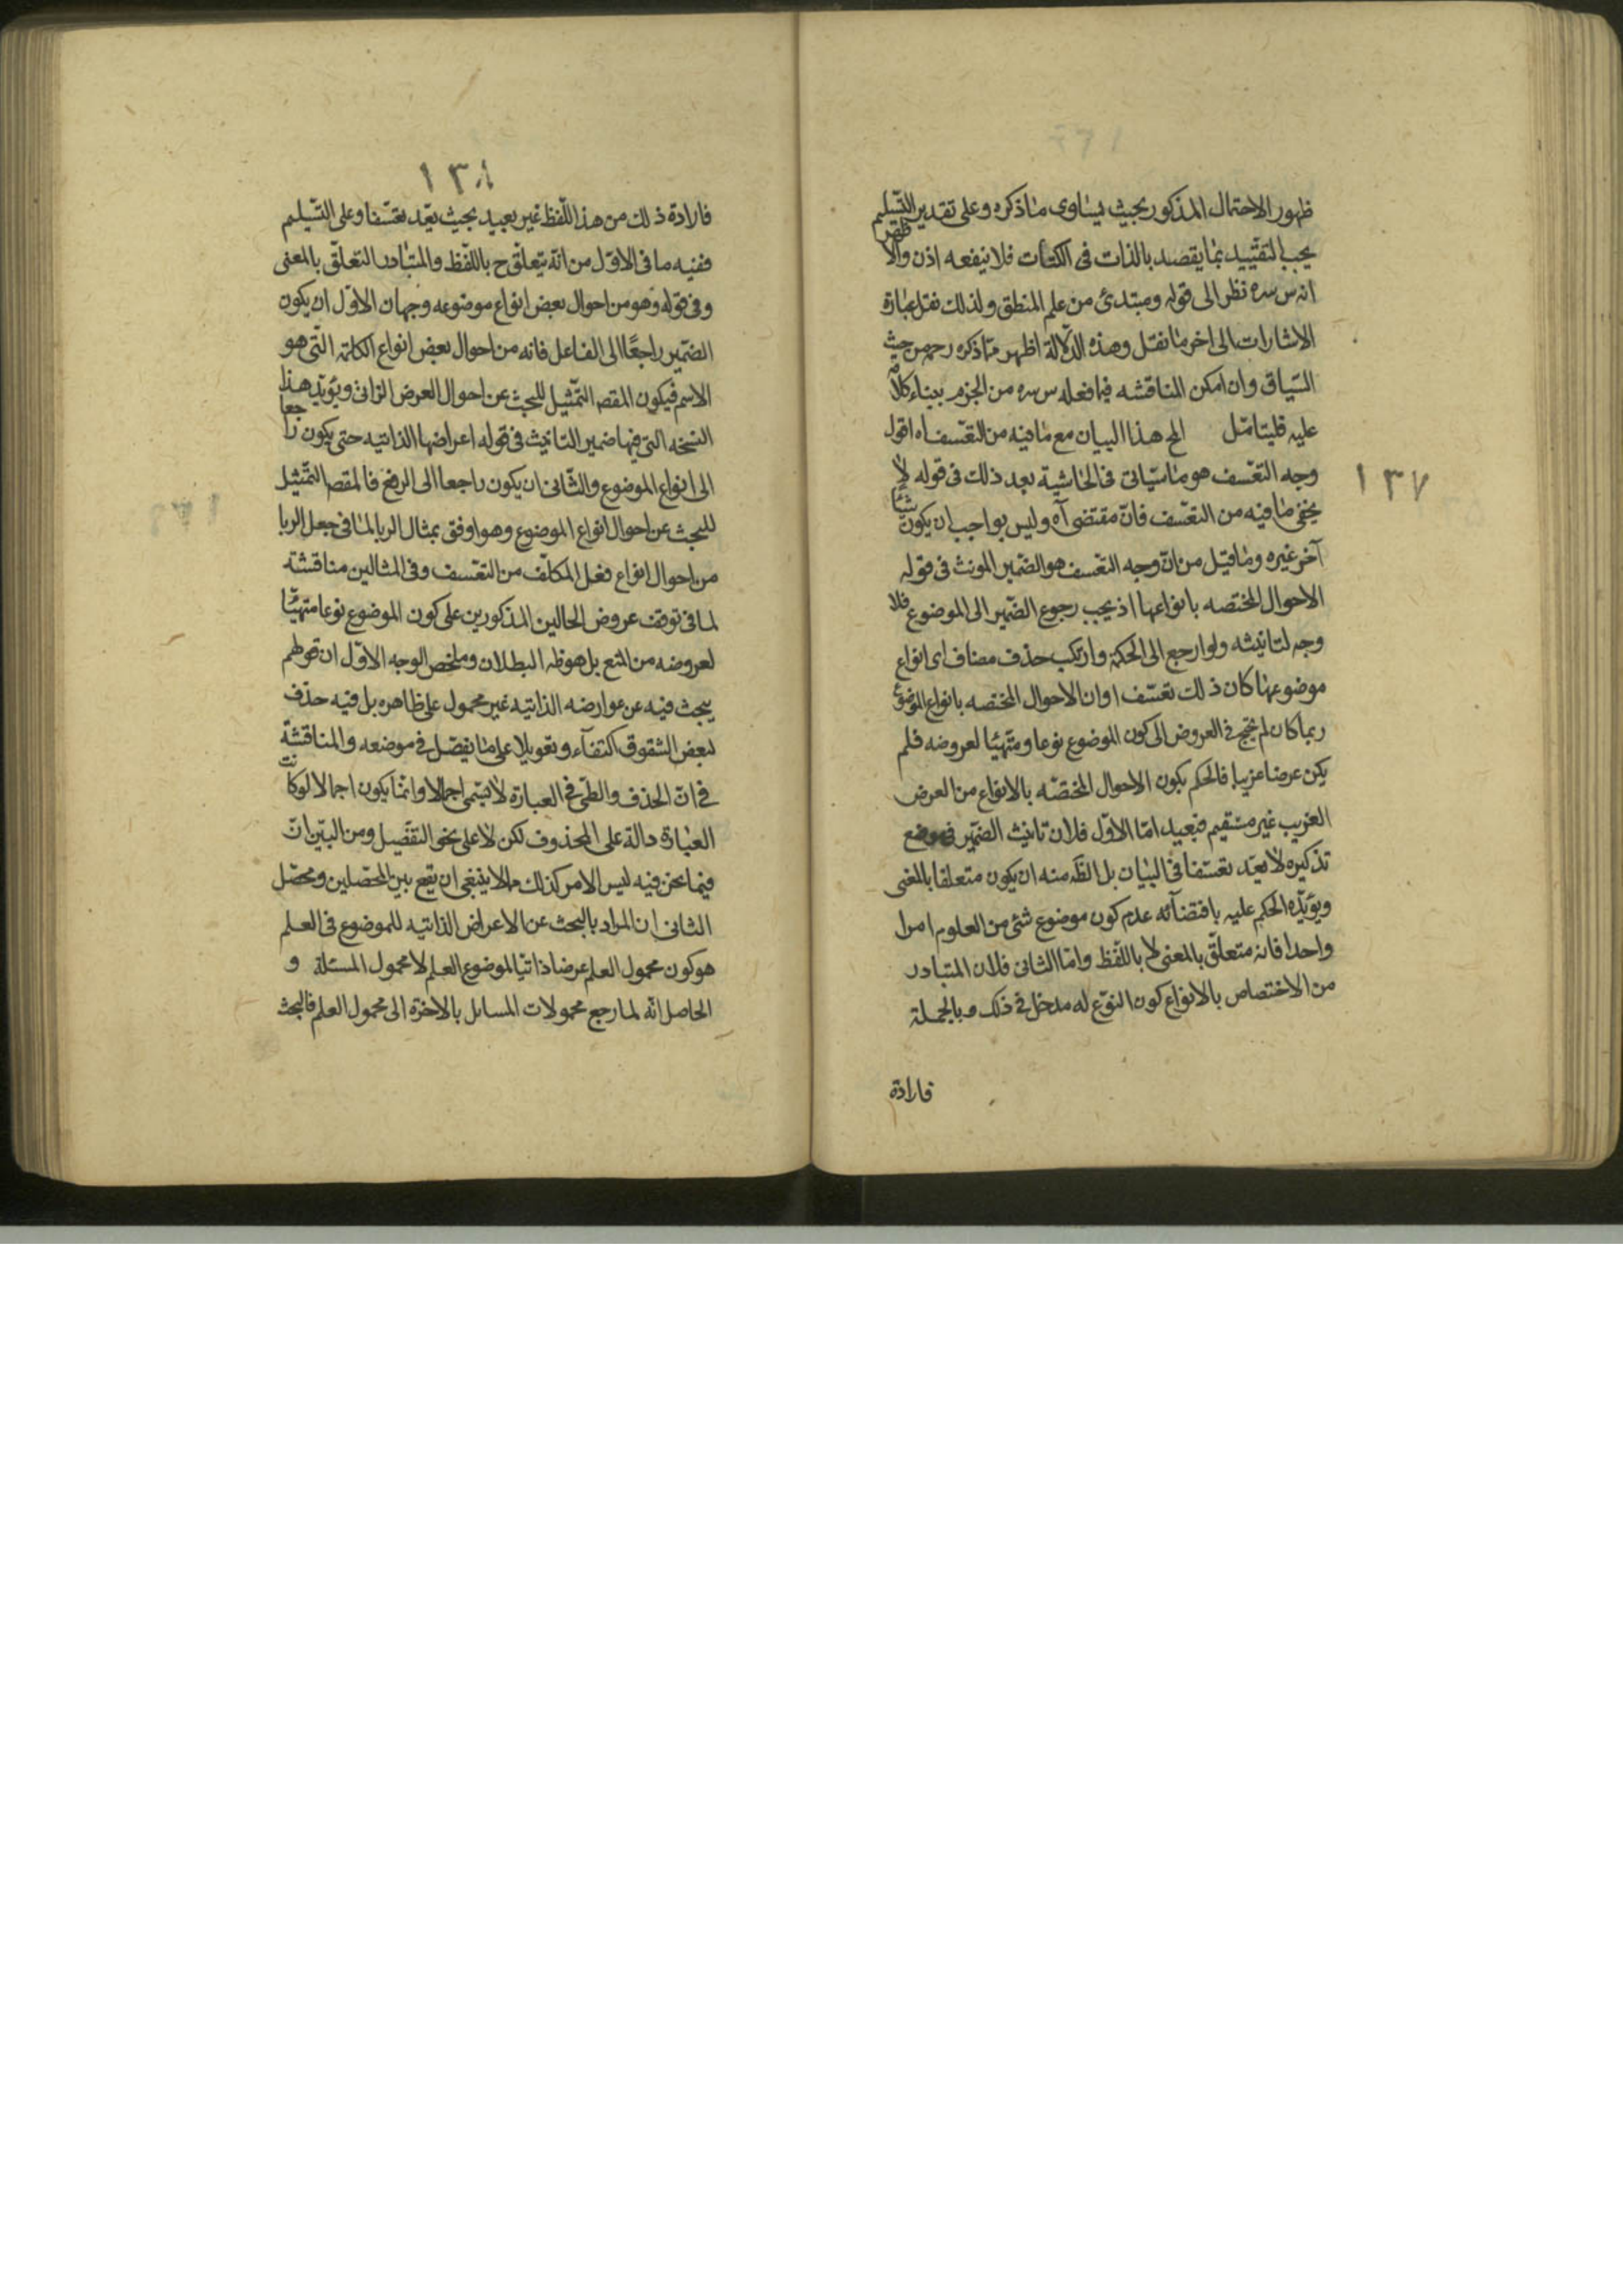 ١٣٧
ظهور الاحتمال المذكور بحيث يساوى ما ذكره وعلى تقدير التسليم
يجب التقييد بما يقصد بالذات فى الكتاب فلا ينفعه اذن والاظهر
انه س سره نظر الى قوله ومبتدئ من علم المنطق ولذلك نقل عبارة
الاشارات الى اخر ما نقل وهذه الدلالة اظهر مما ذكره رحمه من حيث
السياق وان امكن المناقشه فيما فعله س سره من الجزم ببناء كلامه
عليه فليتامل الخ هذا البيان مع ما فيه من التعسف اه اقول
وجه التعسف هو ما سياتى فى الحاشية بعد ذلك فى قوله لا
يخفى ما فيه من التعسف فان مقتضى آه وليس بواجب ان يكون شيئا
آخر غيره وما قيل من ان وجه التعسف هو الضمير المونث فى قوله
الاحوال المختصه بانواعها اذ يجب رجوع الضمير الى الموضوع فلا
وجه لتانيثه ولو ارجع الى الحكمة وارتكب حذف مضاف اى انواع
موضوعها كان ذلك تعسفا وان الاحوال المختصه بانواع الموضوع
ربما كان لم يحتج فى العروض الى كون الموضوع نوعا ومتهيئا لعروضه فلم
يكن عرضا غريبا فالحكم بكون الاحوال المختصه بالانواع من العرض
الغريب غير مستقيم فبعيد اما الاول فلان تانيث الضمير فى موضع
تذكيره لا يعد تعسفا فى البيان بل الظ منه ان يكون متعلقا بالمعنى
ويؤيده الحكم عليه باقتضائه عدم كون موضوع شئ من العلوم امرا
واحدا فانه متعلق بالمعنى لا باللفظ واما الثانى فلان المتبادر
من الاختصاص بالانواع كون النوع له مدخل فى ذلك وبالجملة
فارادة
١٣٨
فارادة ذلك من هذا اللفظ غير بعيد بحيث يعد تعسفا وعلى التسليم
ففيه ما فى الاول من انه يتعلق ح باللفظ والمتبادر التعلق بالمعنى
وفى قوله وهو من احوال بعض انواع موضوعه وجهان الاول ان يكون
الضمير راجعا الى الفاعل فانه من احوال بعض انواع الكلمة التى هو
الاسم فيكون المقصه التمثيل للبحث عن احوال العرض الذاتى ويؤيد هذا
النسخه التى فيها ضمير التانيث فى قوله اعراضها الذاتيه حتى يكون راجعا
الى انواع الموضوع والثانى ان يكون راجعا الى الرفع فالمقصه التمثيل
للبحث عن احوال انواع الموضوع وهو اوفق بمثال الربا لما فى جعل الربا
من احوال انواع فعل المكلف من التعسف وفى المثالين مناقشة
لما فى توقف عروض الحالين المذكورين على كون الموضوع نوعا متهيئا
لعروضه من المنع بل هو ظه البطلان وملخص الوجه الاول ان قولهم
يبحث فيه عن عوارضه الذاتيه غير محمول على ظاهره بل فيه حذف
لبعض الشقوق اكتفاء وتعويلا على ما يفصل فى موضعه والمناقشة
فى ان الحذف والطى فى العبارة لا يسمى اجمالا وانما يكون اجمالا لو كانت
العبارة دالة على المحذوف لكن لا على نحو التفصيل ومن البين ان
فيما نحن فيه ليس الامر كذلك مما لا ينبغى ان يقع بين المحصلين ومحصل
الثانى ان المراد بالبحث عن الاعراض الذاتيه للموضوع فى العلم
هو كون محمول العلم عرضا ذاتيا لموضوع العلم لا محمول المسئلة و
الحاصل انه لما رجع محمولات المسائل بالاخرة الى محمول العلم فالبحث